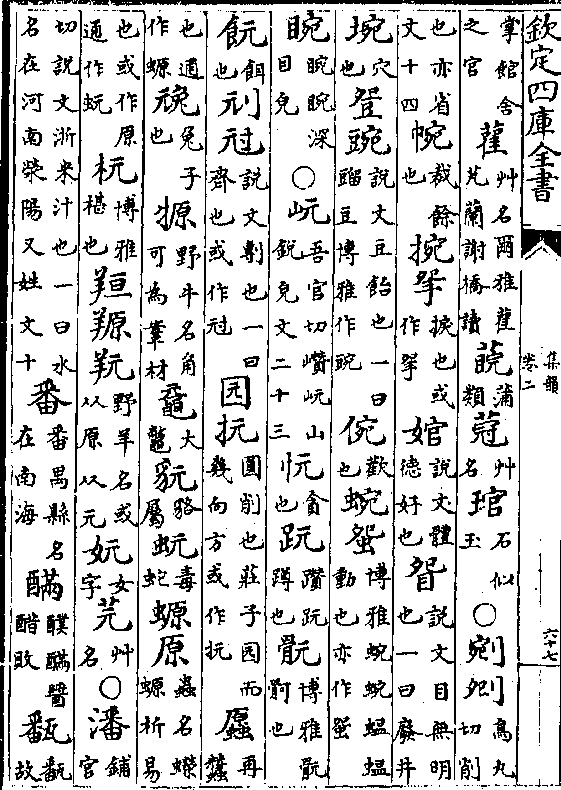 欽定四庫全書
集韻
卷二
六十七
掌館舍之官 雚艸名爾雅雚芄蘭謝嶠讀 莞蒲類 蒄艸名 琯石似玉 ○ 剜 烏丸切削
也亦省文十四 帵裁餘也 捥 捩也或作 婠說文體德好也 眢說文目無明也一曰廢井
埦穴也 豌說文豆飴也一曰䝔豆博雅作豌 倇歡也 蜿䖤博雅蜿蜿蝹蝹動也亦作䖤
睕睕睕深目皃 ○ 岏吾官切巑岏山銳皃文二十三 忨貪也 趼蹲也 骩博雅骩骭也
飥餌也 刓 說文剸也一曰齊也或作 园抏圜削也莊子园而幾向方或作抏 再蠶
也通作螈 兔子也 野牛名角可為輂材 黿大鼈 貉屬 蚖毒蛇 螈原蟲名蠑螈析易
也或作原通作蚖 杬博雅椹也 羱羦野羊名或从原从元 妧女字 芫艸名 ○ 潘鋪官
切說文淅米汁也一曰水名在河南滎陽又姓文十 番番禺縣名在南海 醭䤍醬醋敗 故